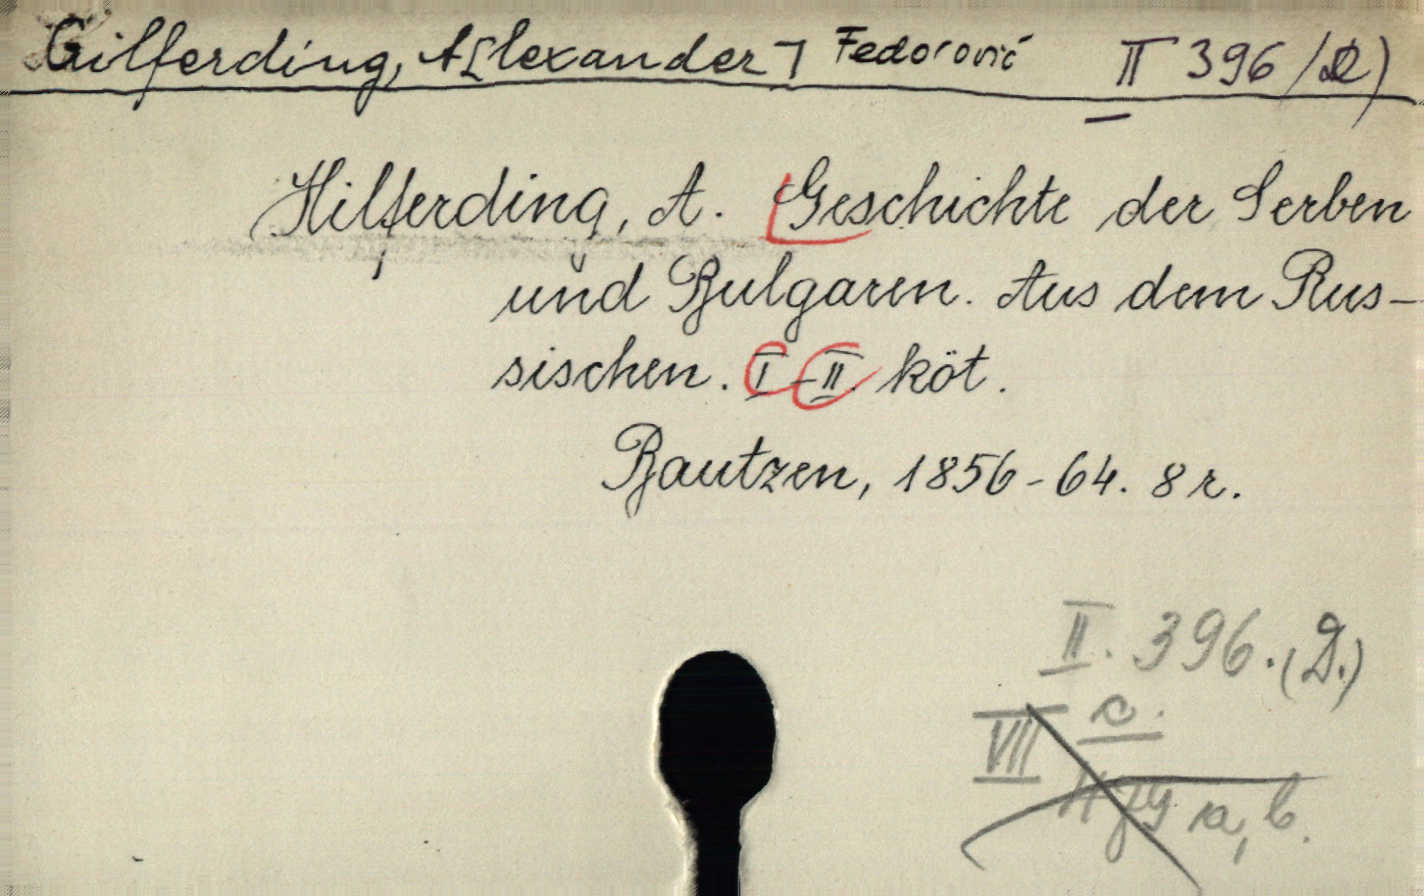 Gilferding, A[lexander] Fedorović II 396/D)
Hilferding, A. Geschichte der Serben
und Bulgaren. Aus dem Rus-
sischen. I-II. köt.
Bautzen, 1856-64. 8 r.
II. 396. (D.)
VII c.
a, b.